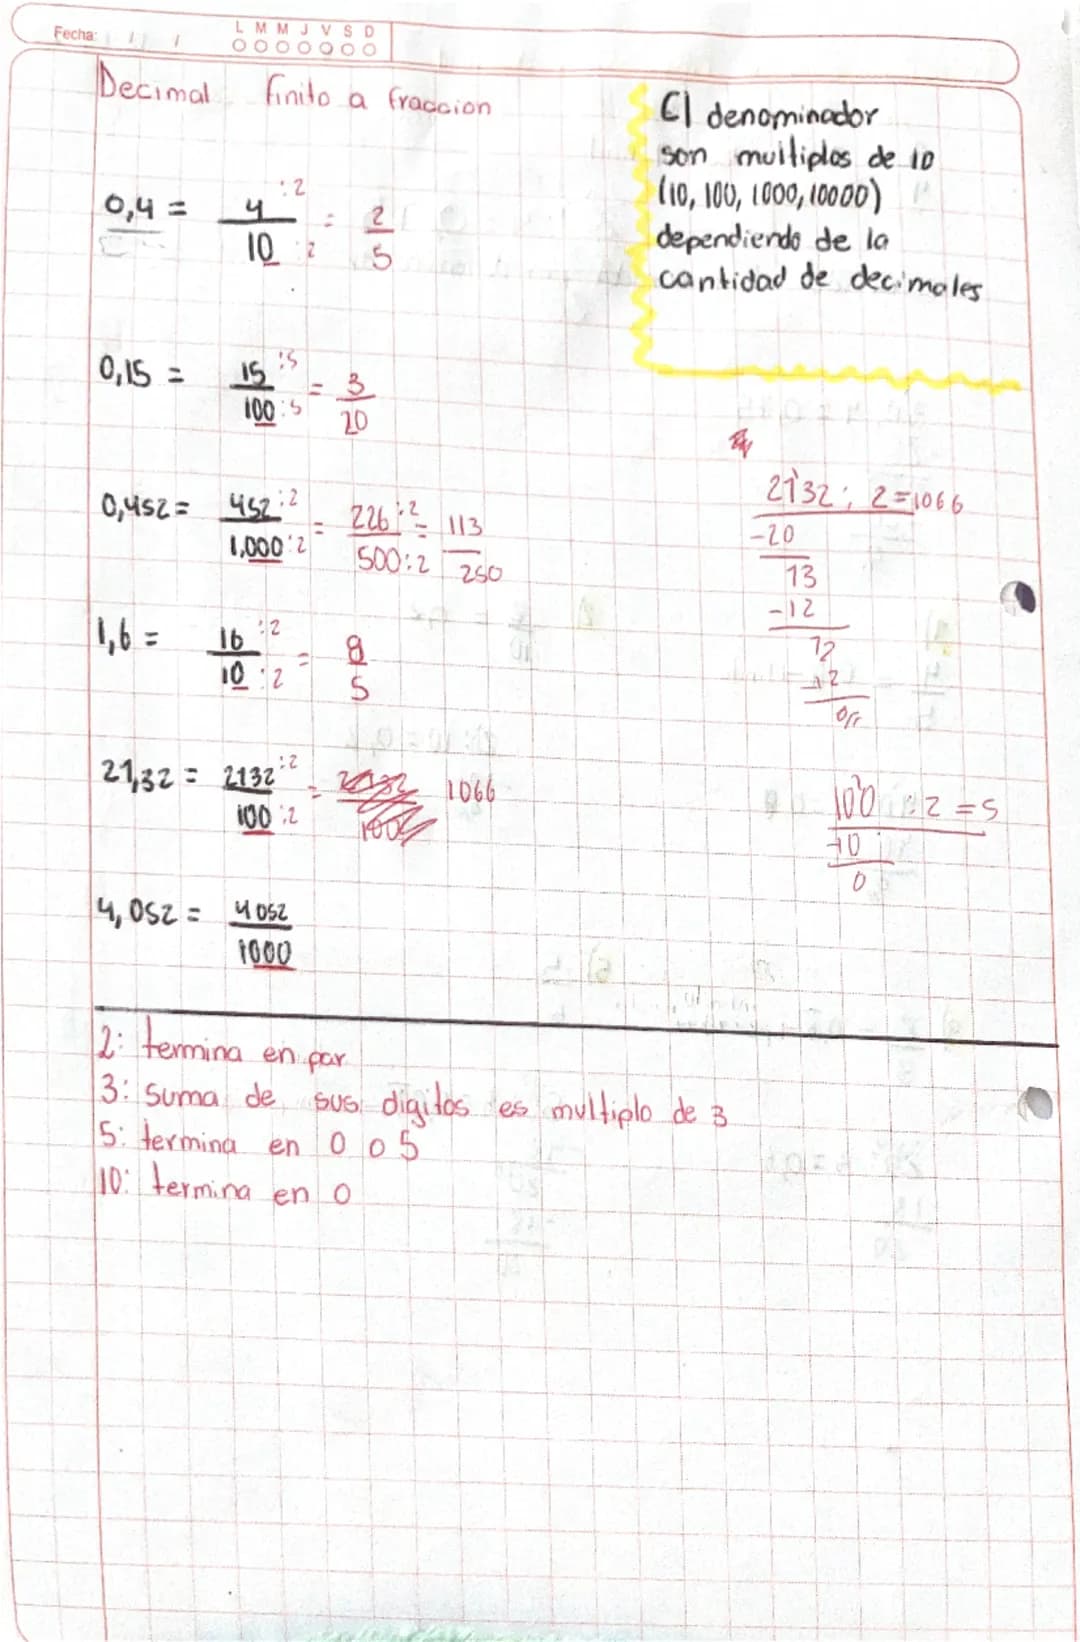 Fecha: / /
L M M J V S D
Decimal finito a fraccion
El denominador
son multiplos de 10
(10, 100, 1000, 10000)
dependiendo de la
cantidad de decimales
0,4 = 4 :2 / 10 :2 = 2 / 5
0,15 = 15 :5 / 100 :5 = 3 / 20
0,452 = 452 :2 / 1,000 :2 = 226 :2 / 500 :2 = 113 / 250
1,6 = 16 :2 / 10 :2 = 8 / 5
21,32 = 2132 :2 / 100 :2 = 1066
4,052 = 4052 / 1000
2132 : 2 = 1066
-20
13
-12
12
12
0
100 : 2 = 5
-10
0
2: termina en par
3: Suma de sus digitos es multiplo de 3
5: termina en 0 o 5
10: termina en 0